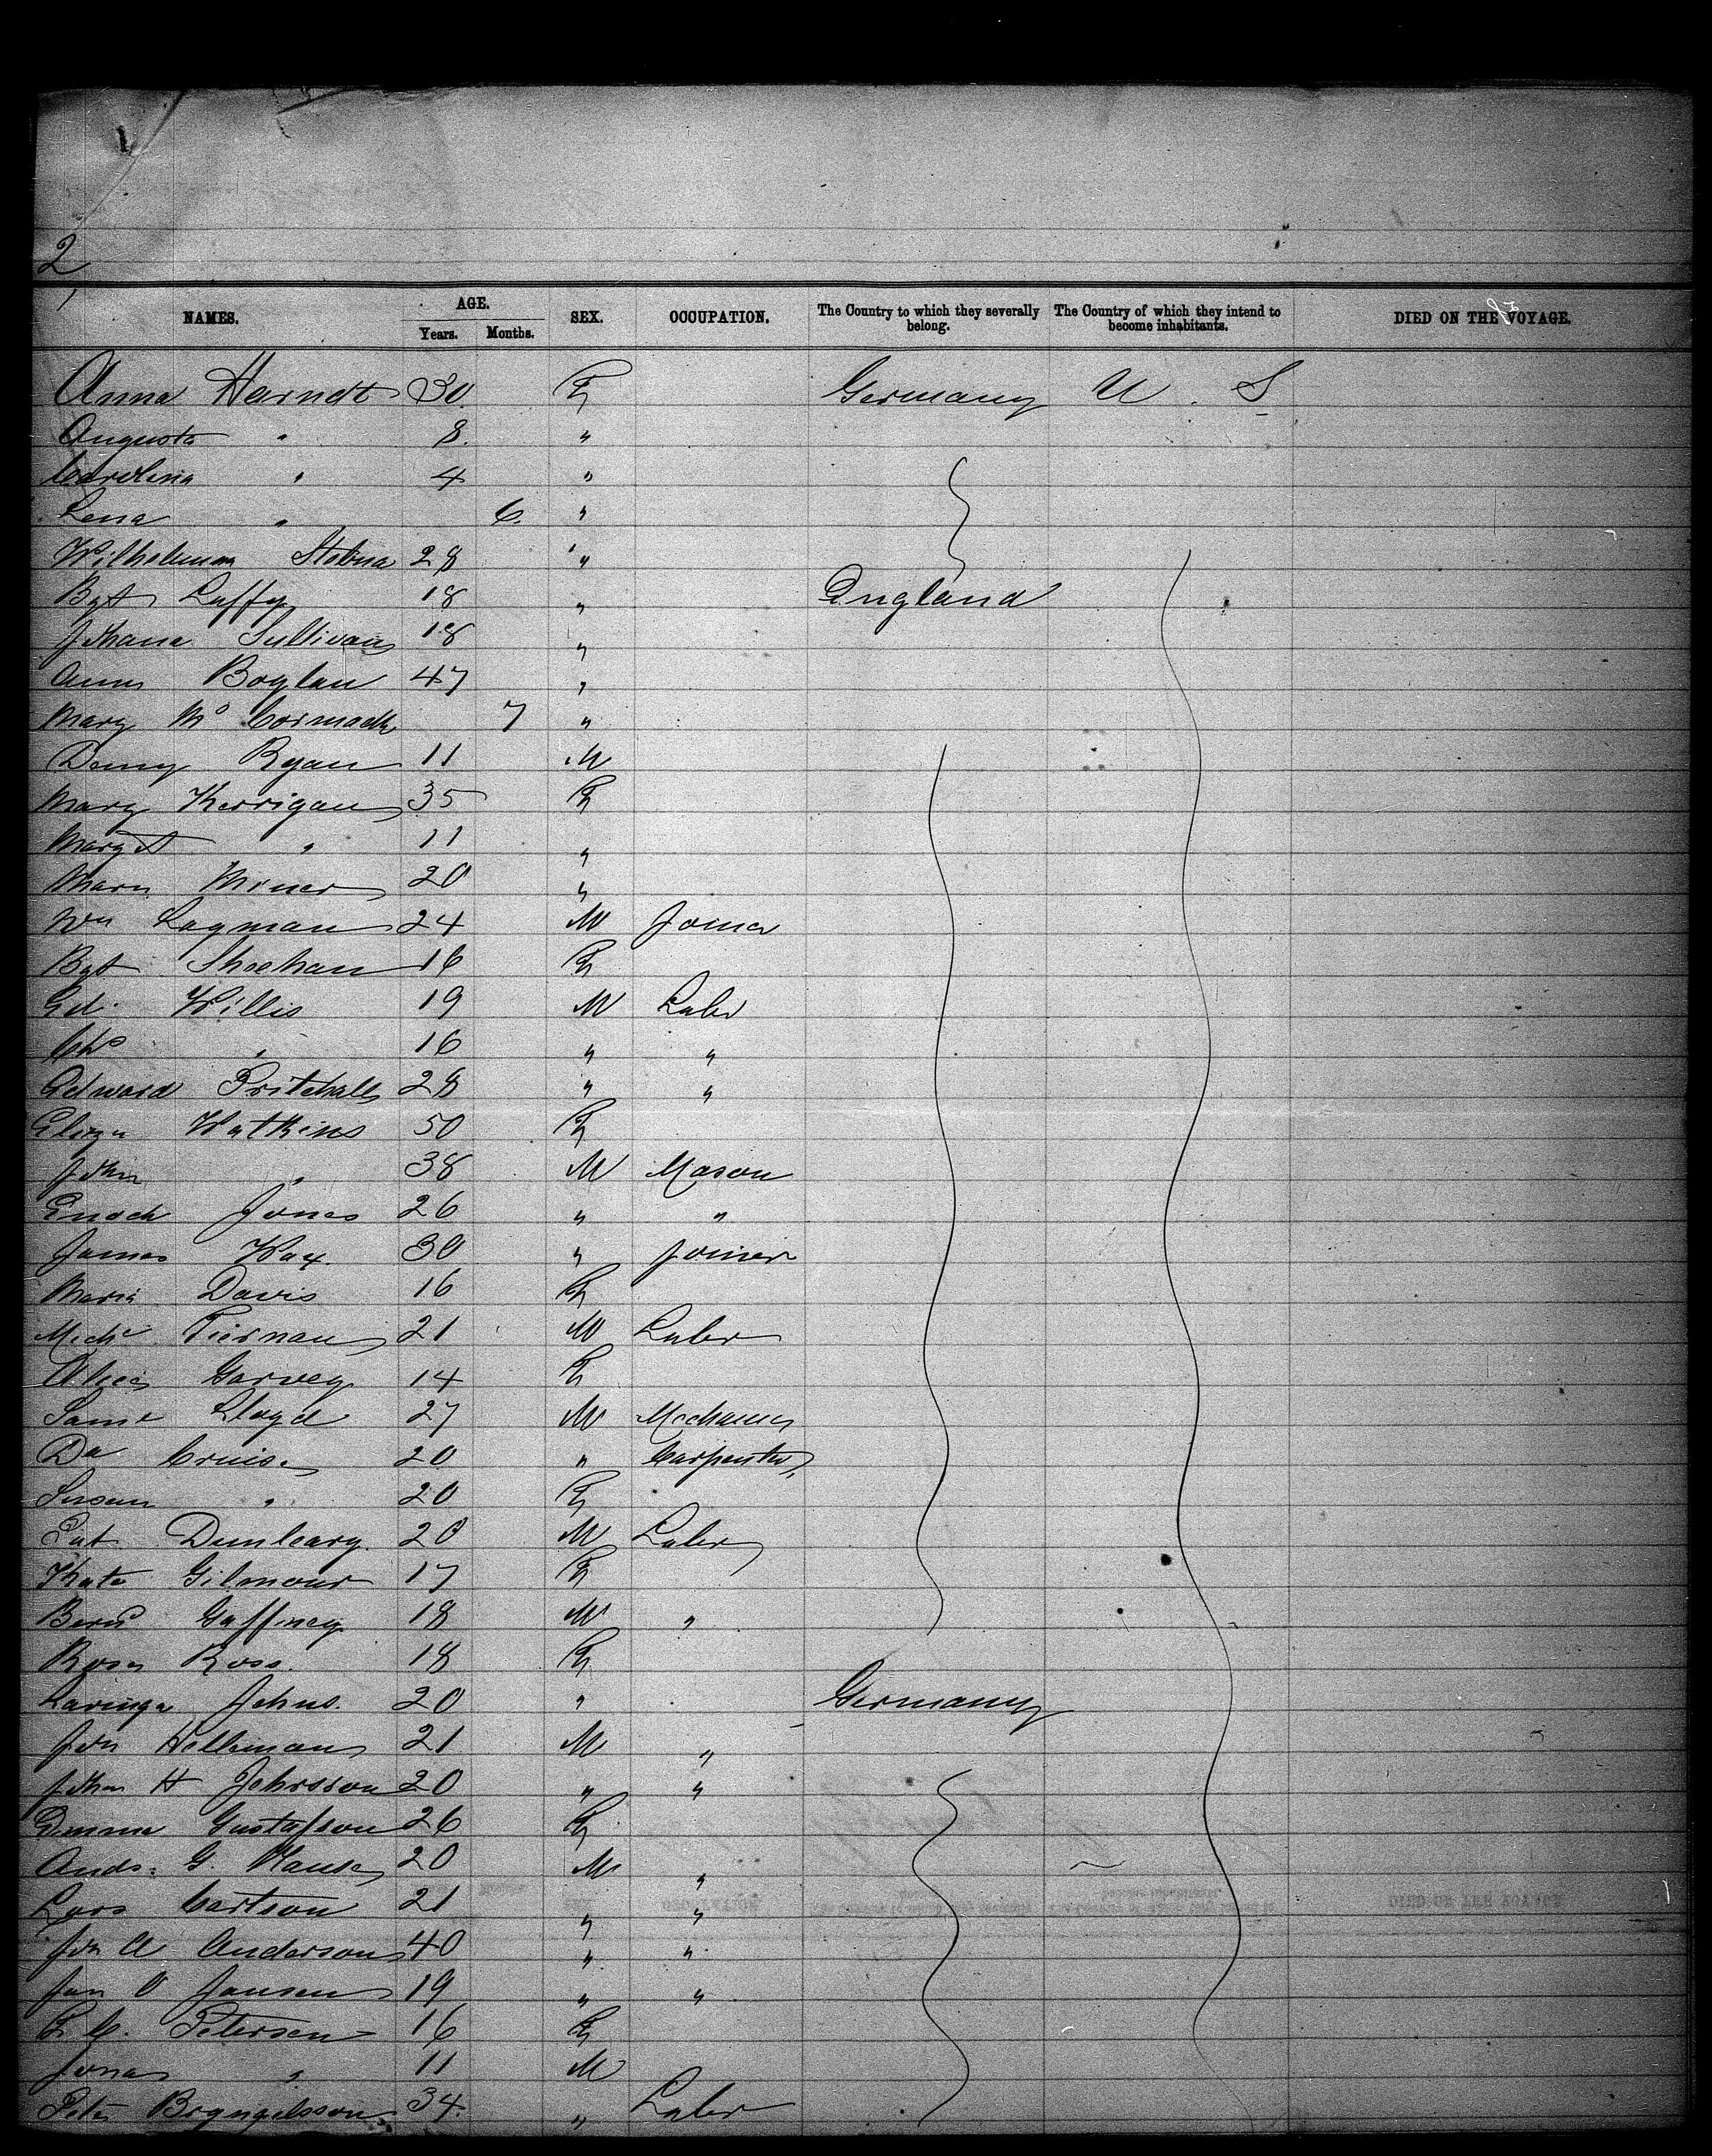 2
NAMES. AGE. Years. Months. SEX. OCCUPATION. The Country to which they severally belong. The Country of which they intend to become inhabitants. DIED ON THE VOYAGE.
Anna Harndt 30 F Germany U. S
Augusta " 8 "
Carolina " 4 "
Lena " 6 "
Wilhelmina 28 "
Bgt Laffy 18 " England
Johana Sullivan 18 "
Ann Boylan 47 "
Mary Mc Cormack 7 "
Denny Ryan 11 M
Mary Kerrigan 35 F
Margt " 11 "
Mary Miner 20 "
Wm Layman 24 M Joiner
Bgt Sheehan 16 F
Ed. Willis 19 M Labr
Chs " 16 " "
Edward Pritchall 28 " "
Eliza Watkins 50 F
John " 38 M Mason
Enoch Jones 26 " "
James Way. 30 " Joiner
Maria Davis 16 F
Michl Tiernan 21 M Labr
Alice Garvey 14 F
Saml Lloyd 27 M Mechanic
Da Cruise 20 " Carpenter
Susan " 20 F
Pat Dunleavy. 20 M Labr
Kate Gilmour 17 F
Bernd Gaffney 18 M "
Rosa Ross. 18 F
Johns. 20 " Germany
Jon Hellman 21 M "
John H Johnsson 20 " "
Emma Gustafson 26 F
Ands. G. 20 M "
Lars Carlson 21 " "
Jon A Anderson 40 " "
Jan O Jansen 19 " "
Petersen 16 F
Jonas " 11 M
Peter Bryngelsson 34 " Labr